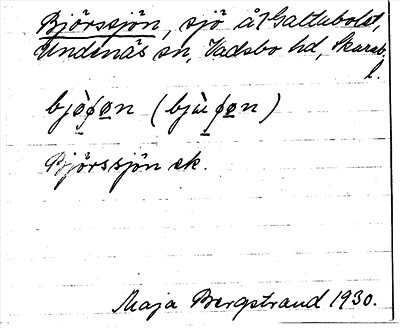 Björssjön, sjö å Gallebolet,
Undenäs sn, Vadsbo hd, Skarab.
l.
Björssjön ek.
Maja Bergstrand 1930.